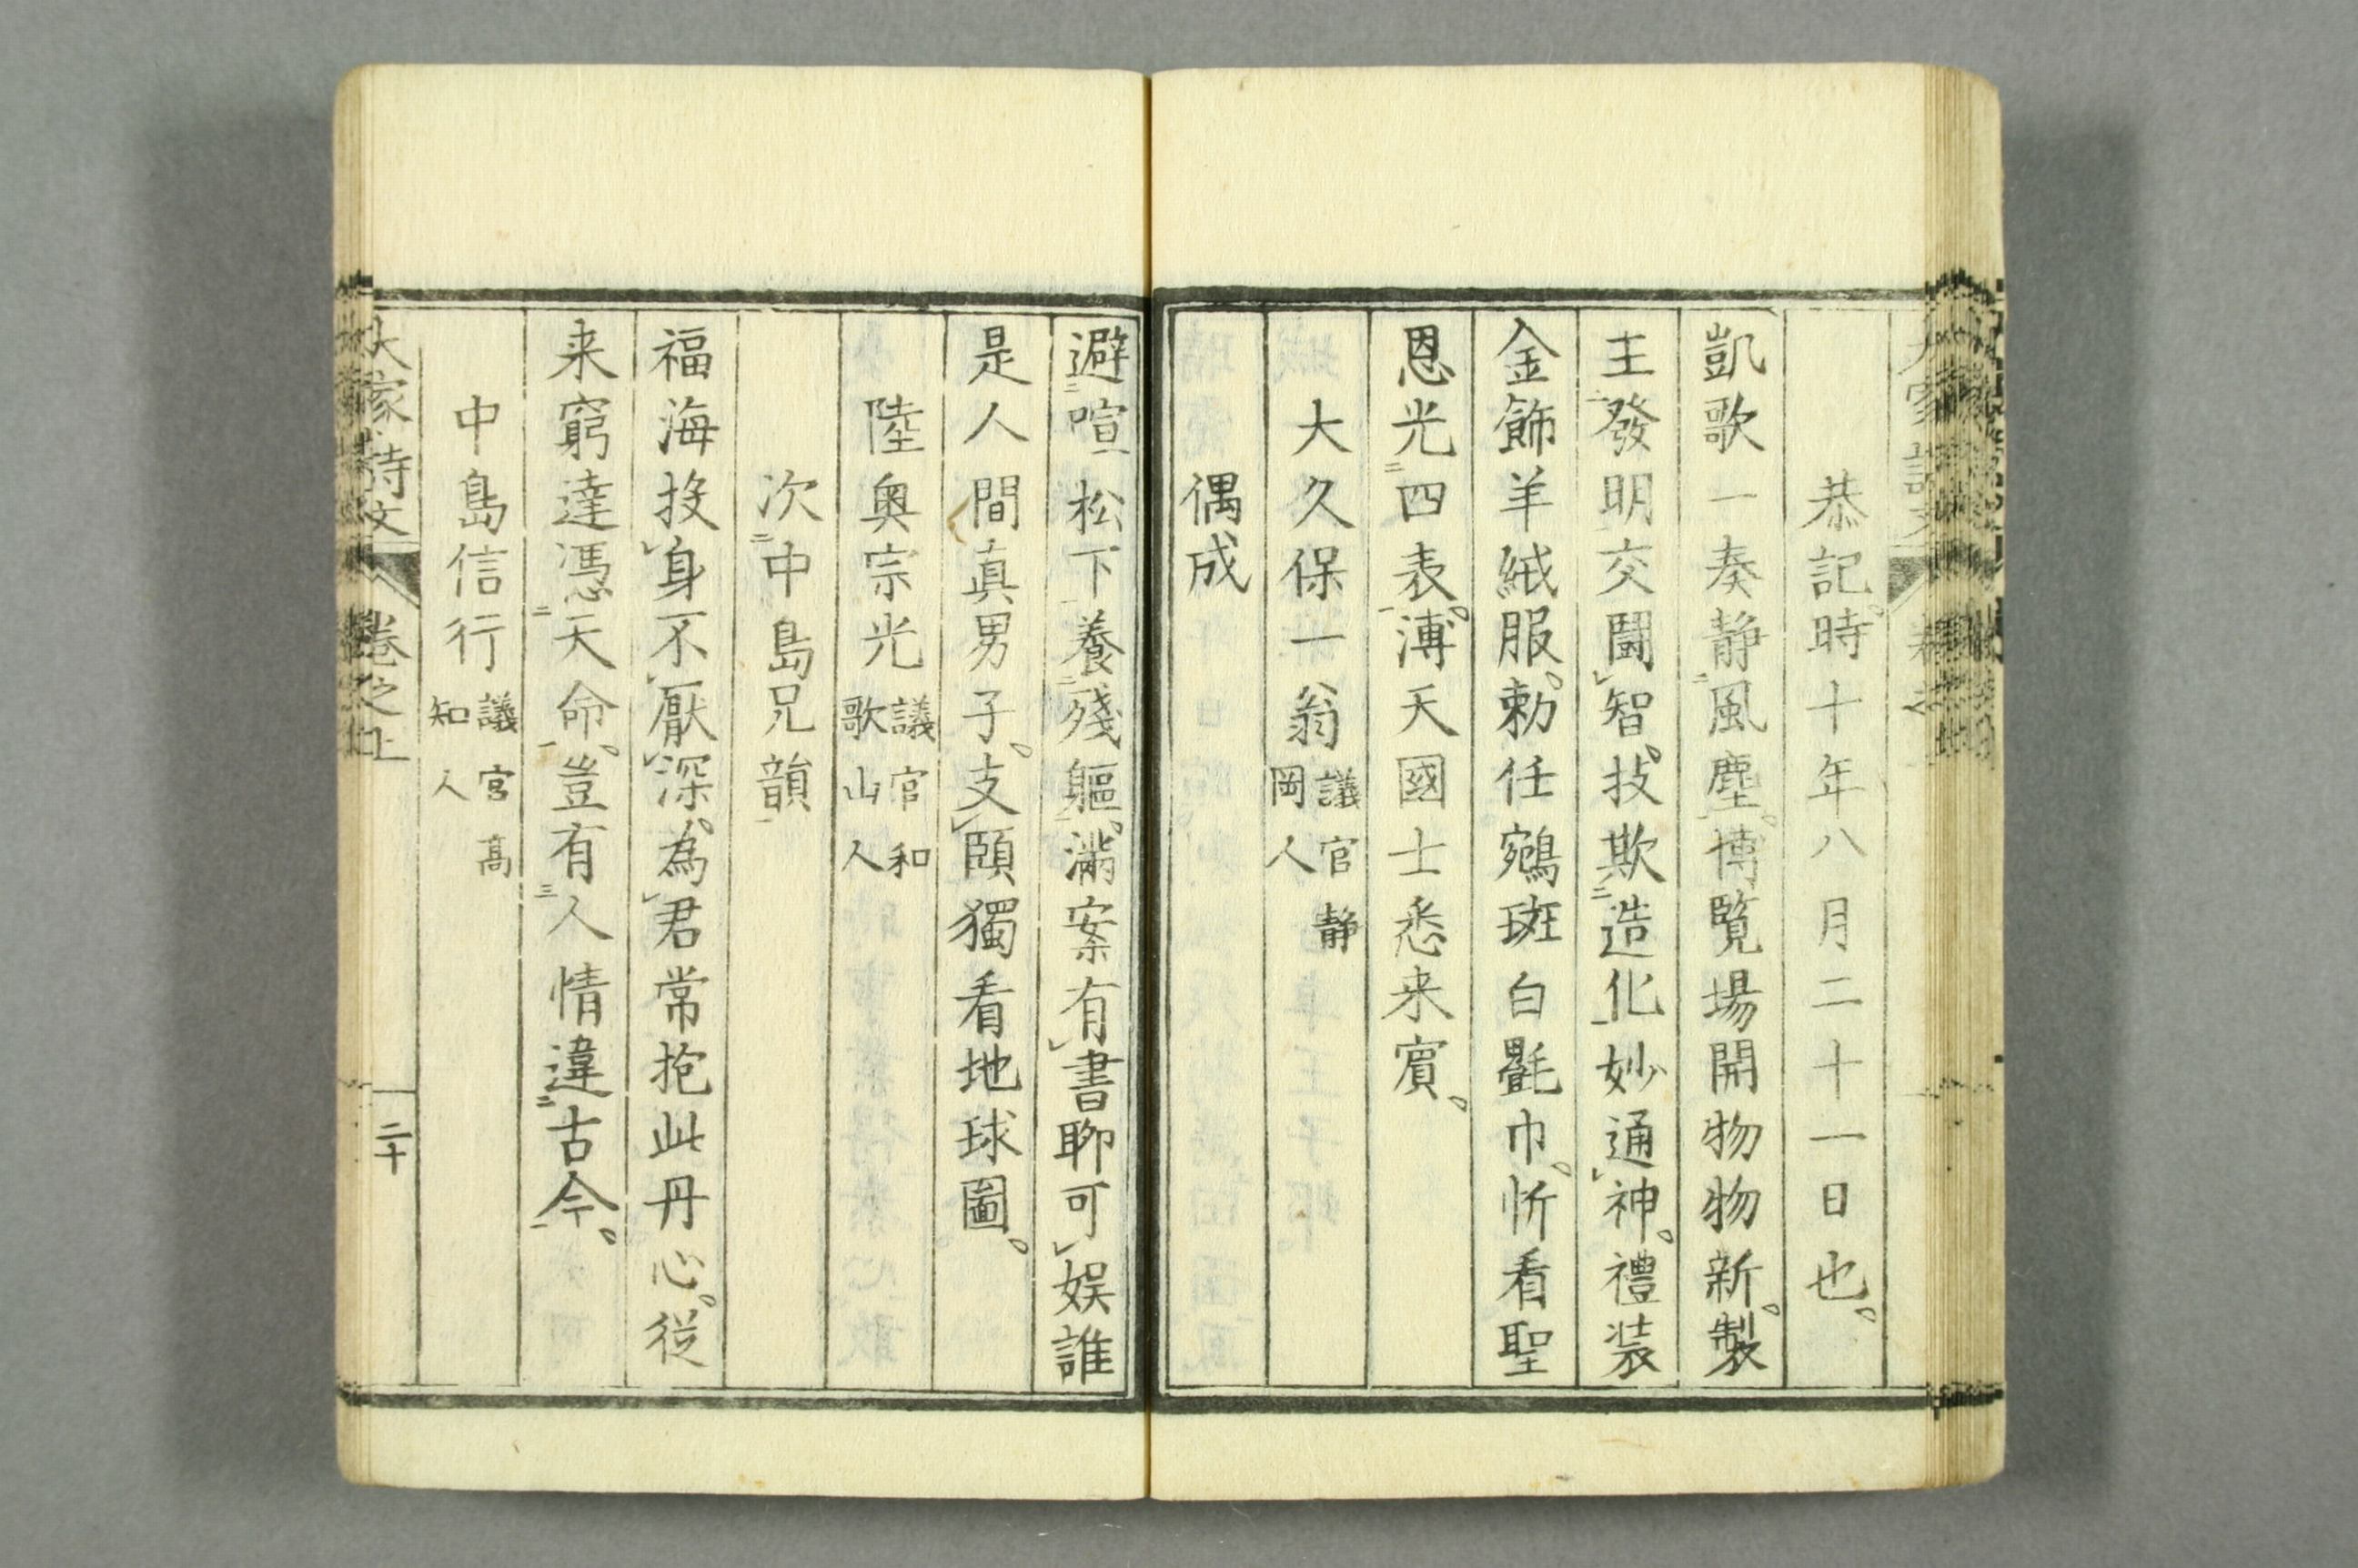 恭記時十年八月二十一日也。
凱歌一奏静二風塵一。博覧場開物物新。製
主二發明一交鬪レ智。技欺二造化一妙通レ神。禮装
金飾羊絨服。勅任鵷班白氎巾。忻看聖
恩光二四表一。溥天國士悉来賓。
大久保一翁 議官静岡人
偶成
避二喧松下一養二殘軀一。滿案有レ書聊可レ娯誰
是人間真男子。支レ頤獨看地球圖。
陸奥宗光 議官和歌山人
次二中島兄韻一
福海投レ身不レ厭レ深。為レ君常抱此丹心。従
来窮達憑二天命一。豈有三人情違二古今一。
中島信行 議官高知人
大家詩文 卷之上 二十